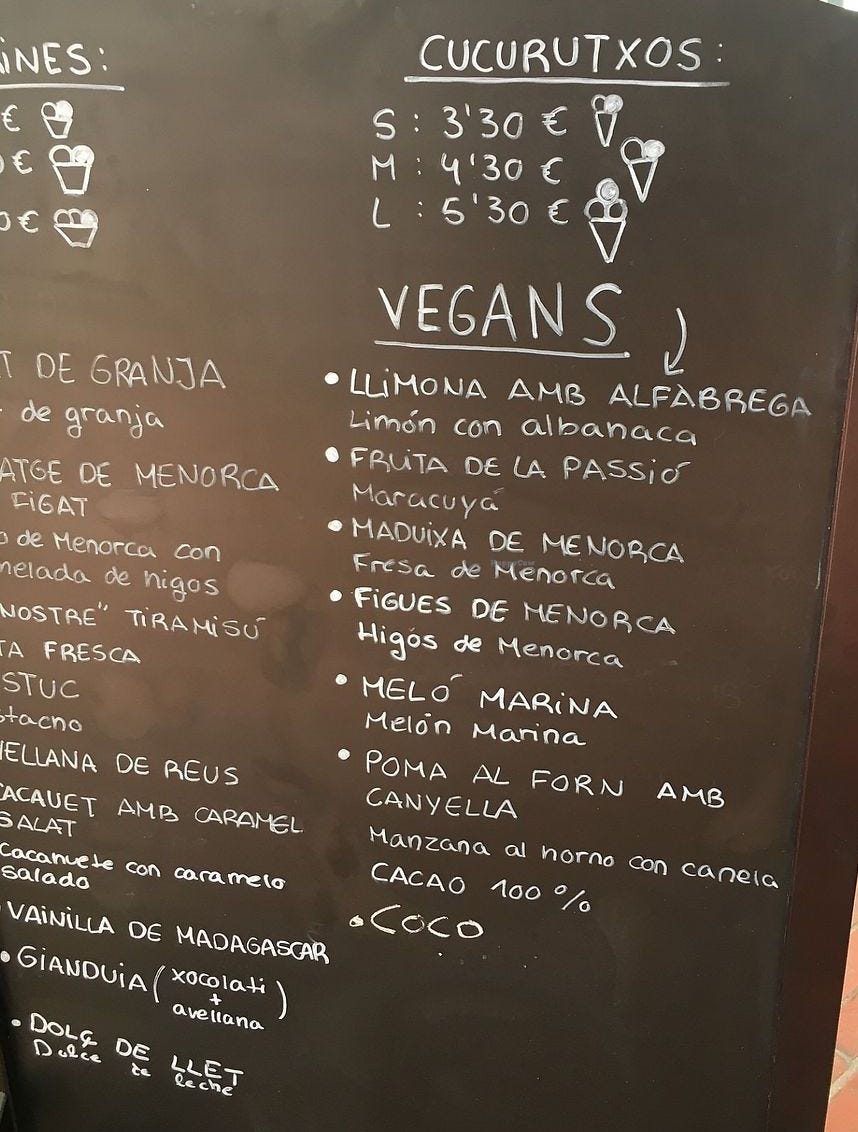 INES:
€
€
0€
T DE GRANJA
de granja
ATGE DE MENORCA
FIGAT
o de Menorca con
melada de higos
NOSTRE" TIRAMISÚ
TA FRESCA
STUC
stacho
ELLANA DE REUS
CACAUET AMB CARAMEL
SALAT
Cacahuete con caramelo
salado
VAINILLA DE MADAGASCAR
• GIANDUIA (xocolati
+
avellana)
• DOLÇ DE LLET
Dulce de leche
CUCURUTXOS:
S: 3'30 €
M: 4'30 €
L: 5'30 €
VEGANS
• LLIMONA AMB ALFÀBREGA
Limón con albahaca
• FRUITA DE LA PASSIÓ
Maracuyá
• MADUIXA DE MENORCA
Fresa de Menorca
• FIGUES DE MENORCA
Higos de Menorca
• MELÓ MARINA
Melón Marina
• POMA AL FORN AMB
CANYELLA
Manzana al horno con canela
CACAO 100%
• COCO